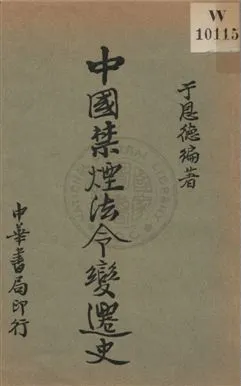 W
10115
于恩德編著
中國禁煙法令變遷史
中華書局印行